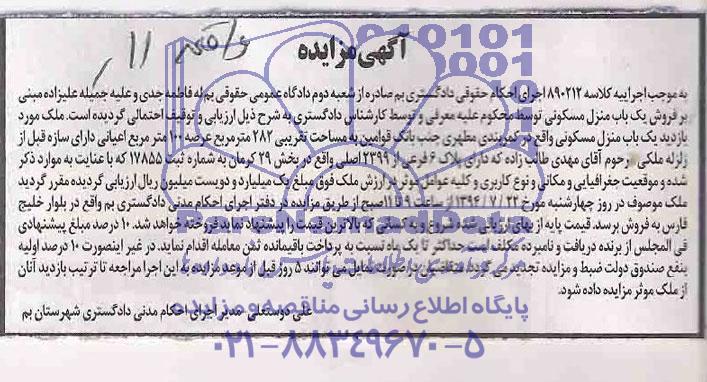 آگهی مزایده
به موجب اجراییه کلاسه ۸۹۰۲۱۲ اجرای احکام حقوقی دادگستری بم صادره از شعبه دوم دادگاه عمومی حقوقی بم له فاطمه جدی و علیه جمیله علیزاده مبنی
بر فروش یک باب منزل مسکونی توسط محکوم علیه معرفی و توسط کارشناس دادگستری به شرح ذیل ارزیابی و توقیف اجتمالی گردیده است. ملک مورد
بازدید یک باب منزل مسکونی واقع در کمربندی مطهری جنب بانک قوامین به مساحت تقریبی ۲۸۲ متر مربع عرصه ۱۰۰ متر مربع اعیانی دارای سازه قبل از
زلزله ملکی مرحوم آقای مهدی طالب زاده که دارای پلاک ۶ فرعی از ۲۳۹۹ اصلی واقع در بخش ۲۹ کرمان به شماره ثبت ۱۷۸۵۵ که با عنایت به موارد ذکر
شده و موقعیت جغرافیایی و مکانی و نوع کاربری و کلیه عوامل موثر در ارزش ملک فوق مبلغ یک میلیارد و دویست میلیون ریال ارزیابی گردیده مقرر گردید
ملک موصوف در روز چهارشنبه مورخ ۱۳۹۴/۷/۲۲ از ساعت ۹ تا ۱۱ صبح از طریق مزایده در دفتر اجرای احکام مدنی دادگستری بم واقع در بلوار خلیج
فارس به فروش برسد. قیمت پایه از بهای ارزیابی شده شروع و به کسانی که بالاترین قیمت را پیشنهاد نماید فروخته خواهد شد. ۱۰ درصد مبلغ پیشنهادی
فی المجلس از برنده دریافت و نامبرده مکلف است حداکثر تا یک ماه نسبت به پرداخت باقیمانده ثمن معامله اقدام نماید. در غیر اینصورت ۱۰ درصد اولیه
بنفع صندوق دولت ضبط و مزایده تجدید می گردد. متقاضیان در صورت تمایل می توانند ۵ روز قبل از موعد مزایده به این اجرا مراجعه تا ترتیب بازدید آنان
از ملک موثر مزایده داده شود.
علی دوستعلی مدیر اجرای احکام مدنی دادگستری شهرستان بم
پایگاه اطلاع رسانی مناقصه و مزایده
۰۲۱-۸۸۳۴۹۶۷۰-۵